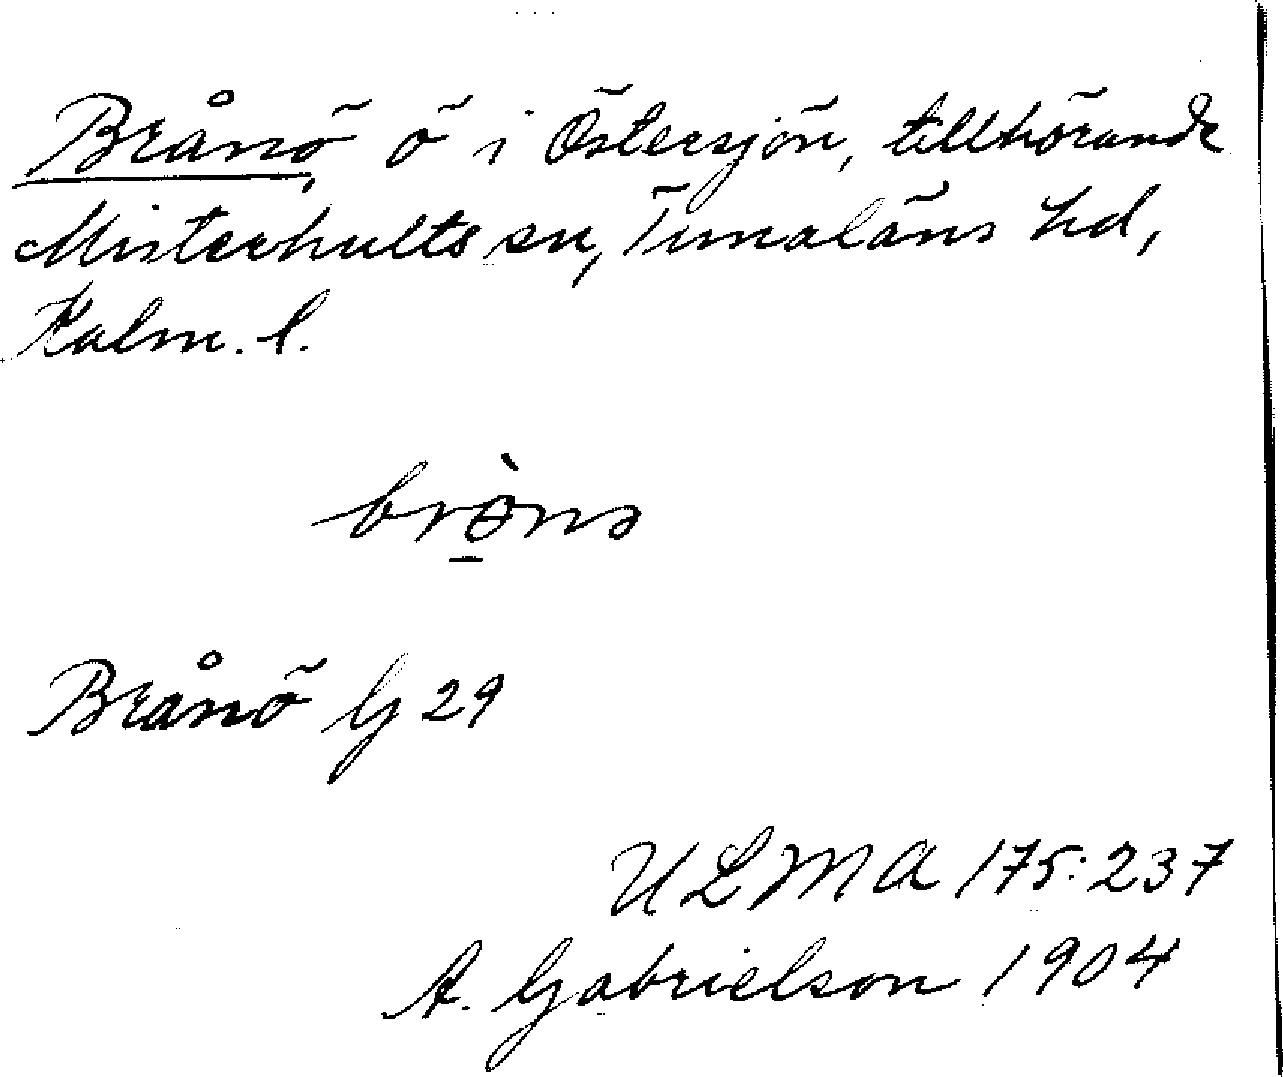 Brånö, ö i Östersjön, tillhörande
Misterhults sn, Tunaläns hd,
Kalm. l.
Brånö G 29
ULMA 175:237
A. Gabrielson 1904